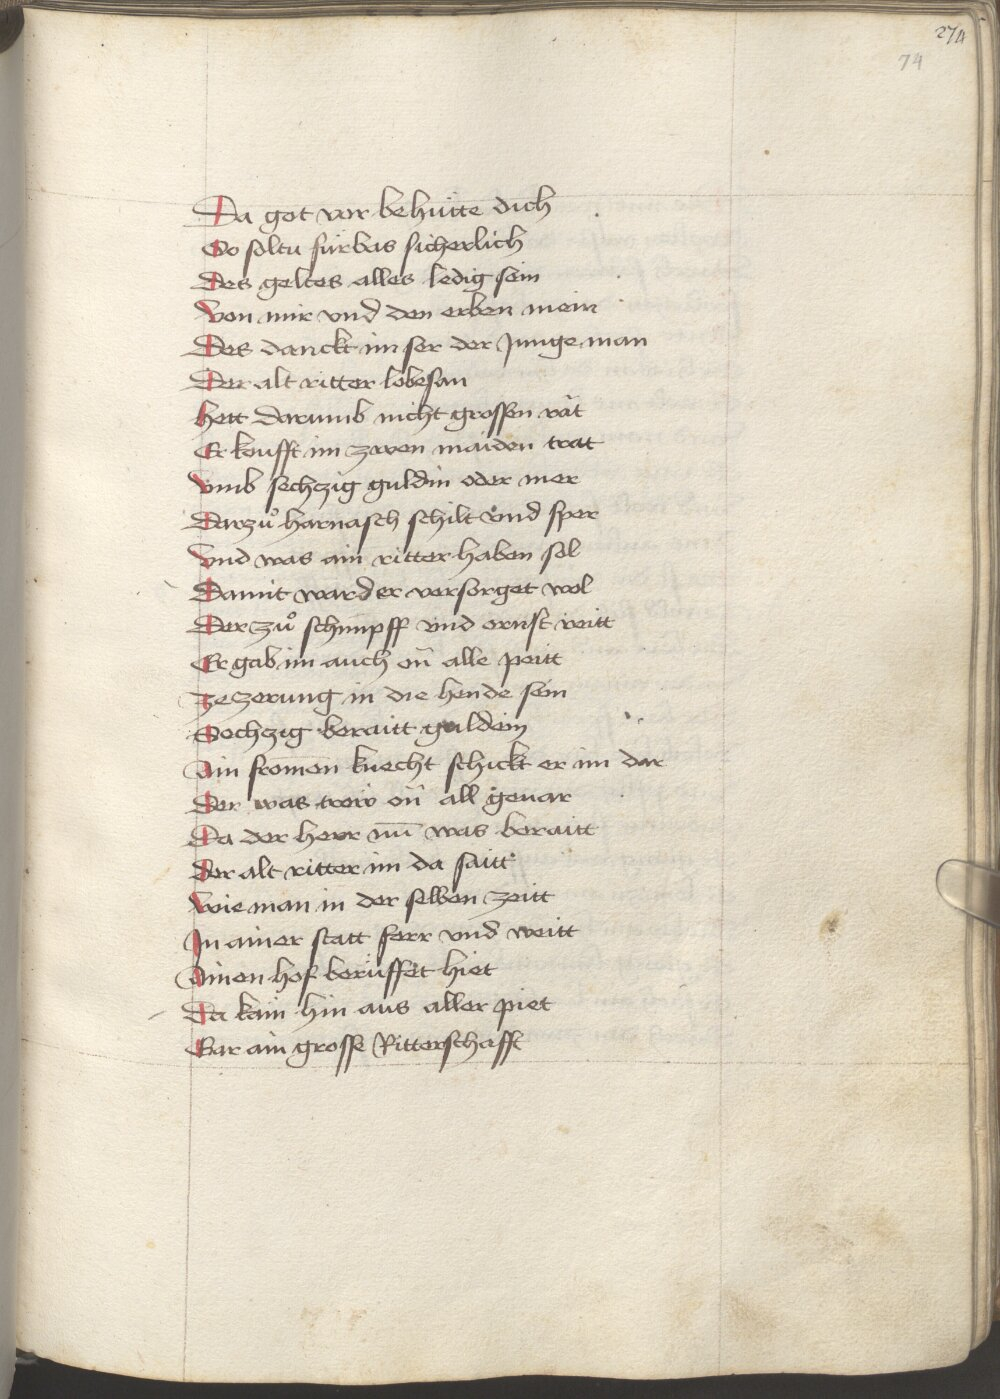 274
74
Da got vor behütte dich
So soltu fürbas sicherlich
Des geltes alles ledig sein
Von mir vnd den erben mein
Des danckt im ser der Junge man
Der alt ritter lobesan
Hett darumb nicht grossen rät
Er koufft im zwen maiden trat
Vmb sechzig guldin oder mer
Darzuͦ harnasch schilt vnd sper
Vnd was ain ritter haben sol
Damit ward er versorget wol
Der zuͦ schimpff vnd ernst reitt
Er gab im auch on̄ alle peitt
Ze zerung in die hende sein
Sechzig beraitt guldein
Ain fromen knecht schickt er im dar
Der was trew on̄ all geuar
Da der herr nu̅ was beraitt
Der alt ritter im da saitt
Wie man in der selben zeitt
In ainer statt ferr vnd weitt
Ainen hof berüffet hiet
Da kam hin aus aller piet
Gar ain grosse Ritterschafft